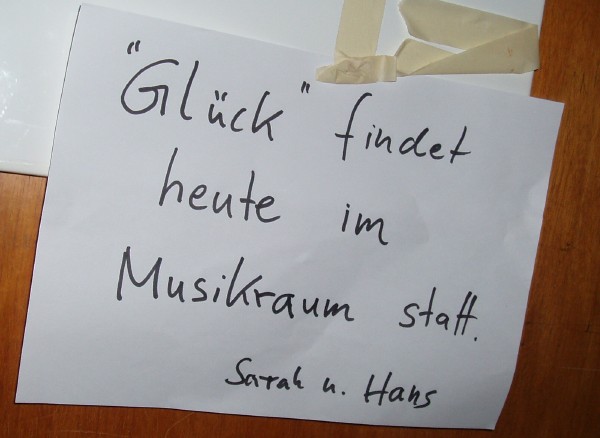 "Glück" findet
heute im
Musikraum statt.
Sarah u. Hans